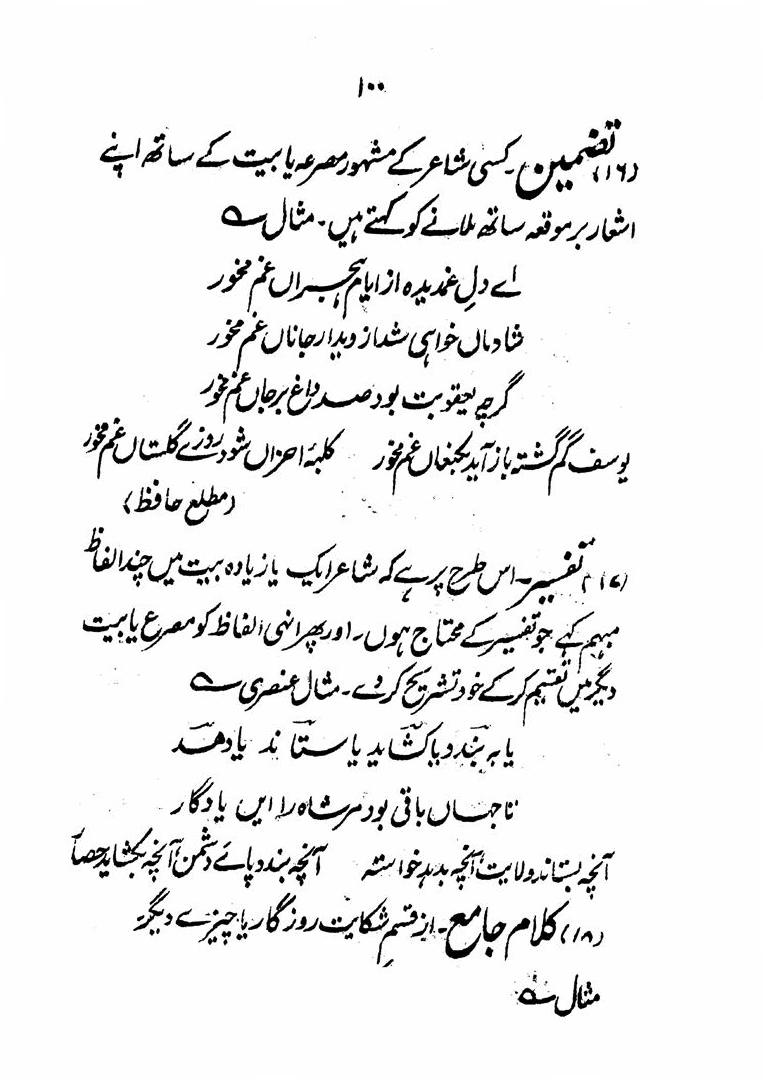 ۱۰۰
(۱۶) تضمین۔ کسی شاعر کے مشہور مصرعہ یا بیت کے ساتھ اپنے
اشعار بر موقعہ ساتھ ملانے کو کہتے ہیں۔ مثال ؎
اے دلِ غمدیدہ از ایام ہجراں غم مخور
شادماں خواہی شد از دیدار جاناں غم مخور
گرچہ یعقوبت بود صد داغ بر جاں غم مخور
یوسف گم گشتہ باز آید بکنعاں غم مخور کلبۂ احزاں شود روزے گلستاں غم مخور
(مطلع حافظ)
(۱۷) تفسیر۔ اس طرح پر ہے کہ شاعر ایک یا زیادہ بیت میں چند الفاظ
مبہم کہے جو تفسیر کے محتاج ہوں۔ اور پھر انہی الفاظ کو مصرع یا بیت
دیگر میں تقسیم کر کے خود تشریح کر دے۔ مثال عنصری ؎
یا ببندد یا کشاید یا ستاند یا دہد
تا جہاں باقی بود مر شاہ را ایں یادگار
آنچہ بستاند ولایت، آنچہ بدہد خواستہ آنچہ بندد پائے دشمن، آنچہ بکشاید حصار
(۱۸) کلام جامع۔ از قسم شکایت روزگار یا چیزے دیگر۔
مثال ؎